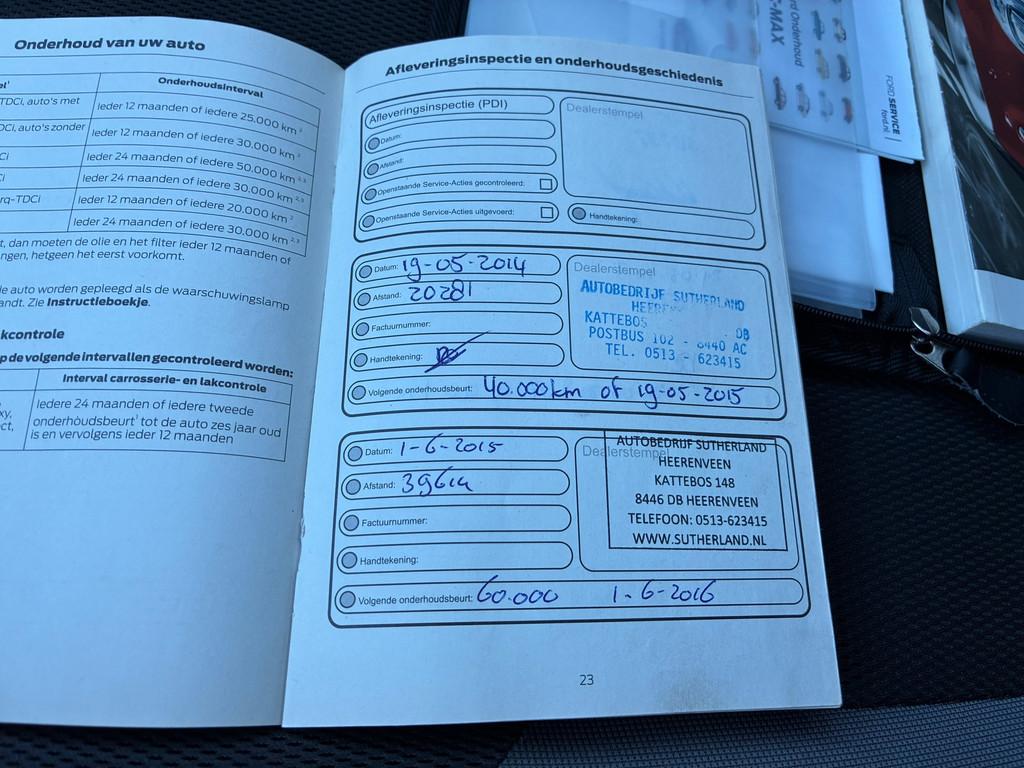 Onderhoud van uw auto
Onderhoudsinterval
TDCi, auto's met
Ieder 12 maanden of iedere 25.000 km ²
DCi, auto's zonder
Ieder 12 maanden of iedere 30.000 km ²
Ci
Ieder 24 maanden of iedere 50.000 km ²,³
Ieder 24 maanden of iedere 30.000 km ²,³
rq-TDCi
Ieder 12 maanden of iedere 20.000 km ²
Ieder 24 maanden of iedere 30.000 km ²,³
t, dan moeten de olie en het filter ieder 12 maanden of
ngen, hetgeen het eerst voorkomt.
e auto worden gepleegd als de waarschuwingslamp
andt. Zie Instructieboekje.
kcontrole
p de volgende intervallen gecontroleerd worden:
Interval carrosserie- en lakcontrole
xy,
ct,
Iedere 24 maanden of iedere tweede
onderhoudsbeurt¹ tot de auto zes jaar oud
is en vervolgens ieder 12 maanden
Afleveringsinspectie en onderhoudsgeschiedenis
Afleveringsinspectie (PDI)
Dealerstempel
Datum:
Afstand:
Openstaande Service-Acties gecontroleerd:
Openstaande Service-Acties uitgevoerd:
Handtekening:
Datum: 19-05-2014
Afstand: 20281
Factuurnummer:
Handtekening:
Dealerstempel
AUTOBEDRIJF SUTHERLAND
KATTEBOS DB
POSTBUS 102 - 8440 AC
TEL. 0513 - 623415
Volgende onderhoudsbeurt: 40.000km of 19-05-2015
Datum: 1-6-2015
Afstand:
Factuurnummer:
Handtekening:
Dealerstempel
AUTOBEDRIJF SUTHERLAND
HEERENVEEN
KATTEBOS 148
8446 DB HEERENVEEN
TELEFOON: 0513-623415
WWW.SUTHERLAND.NL
Volgende onderhoudsbeurt: 60.000 1-6-2016
23
-MAX
Ford Onderhoud
FORD SERVICE
ford.nl